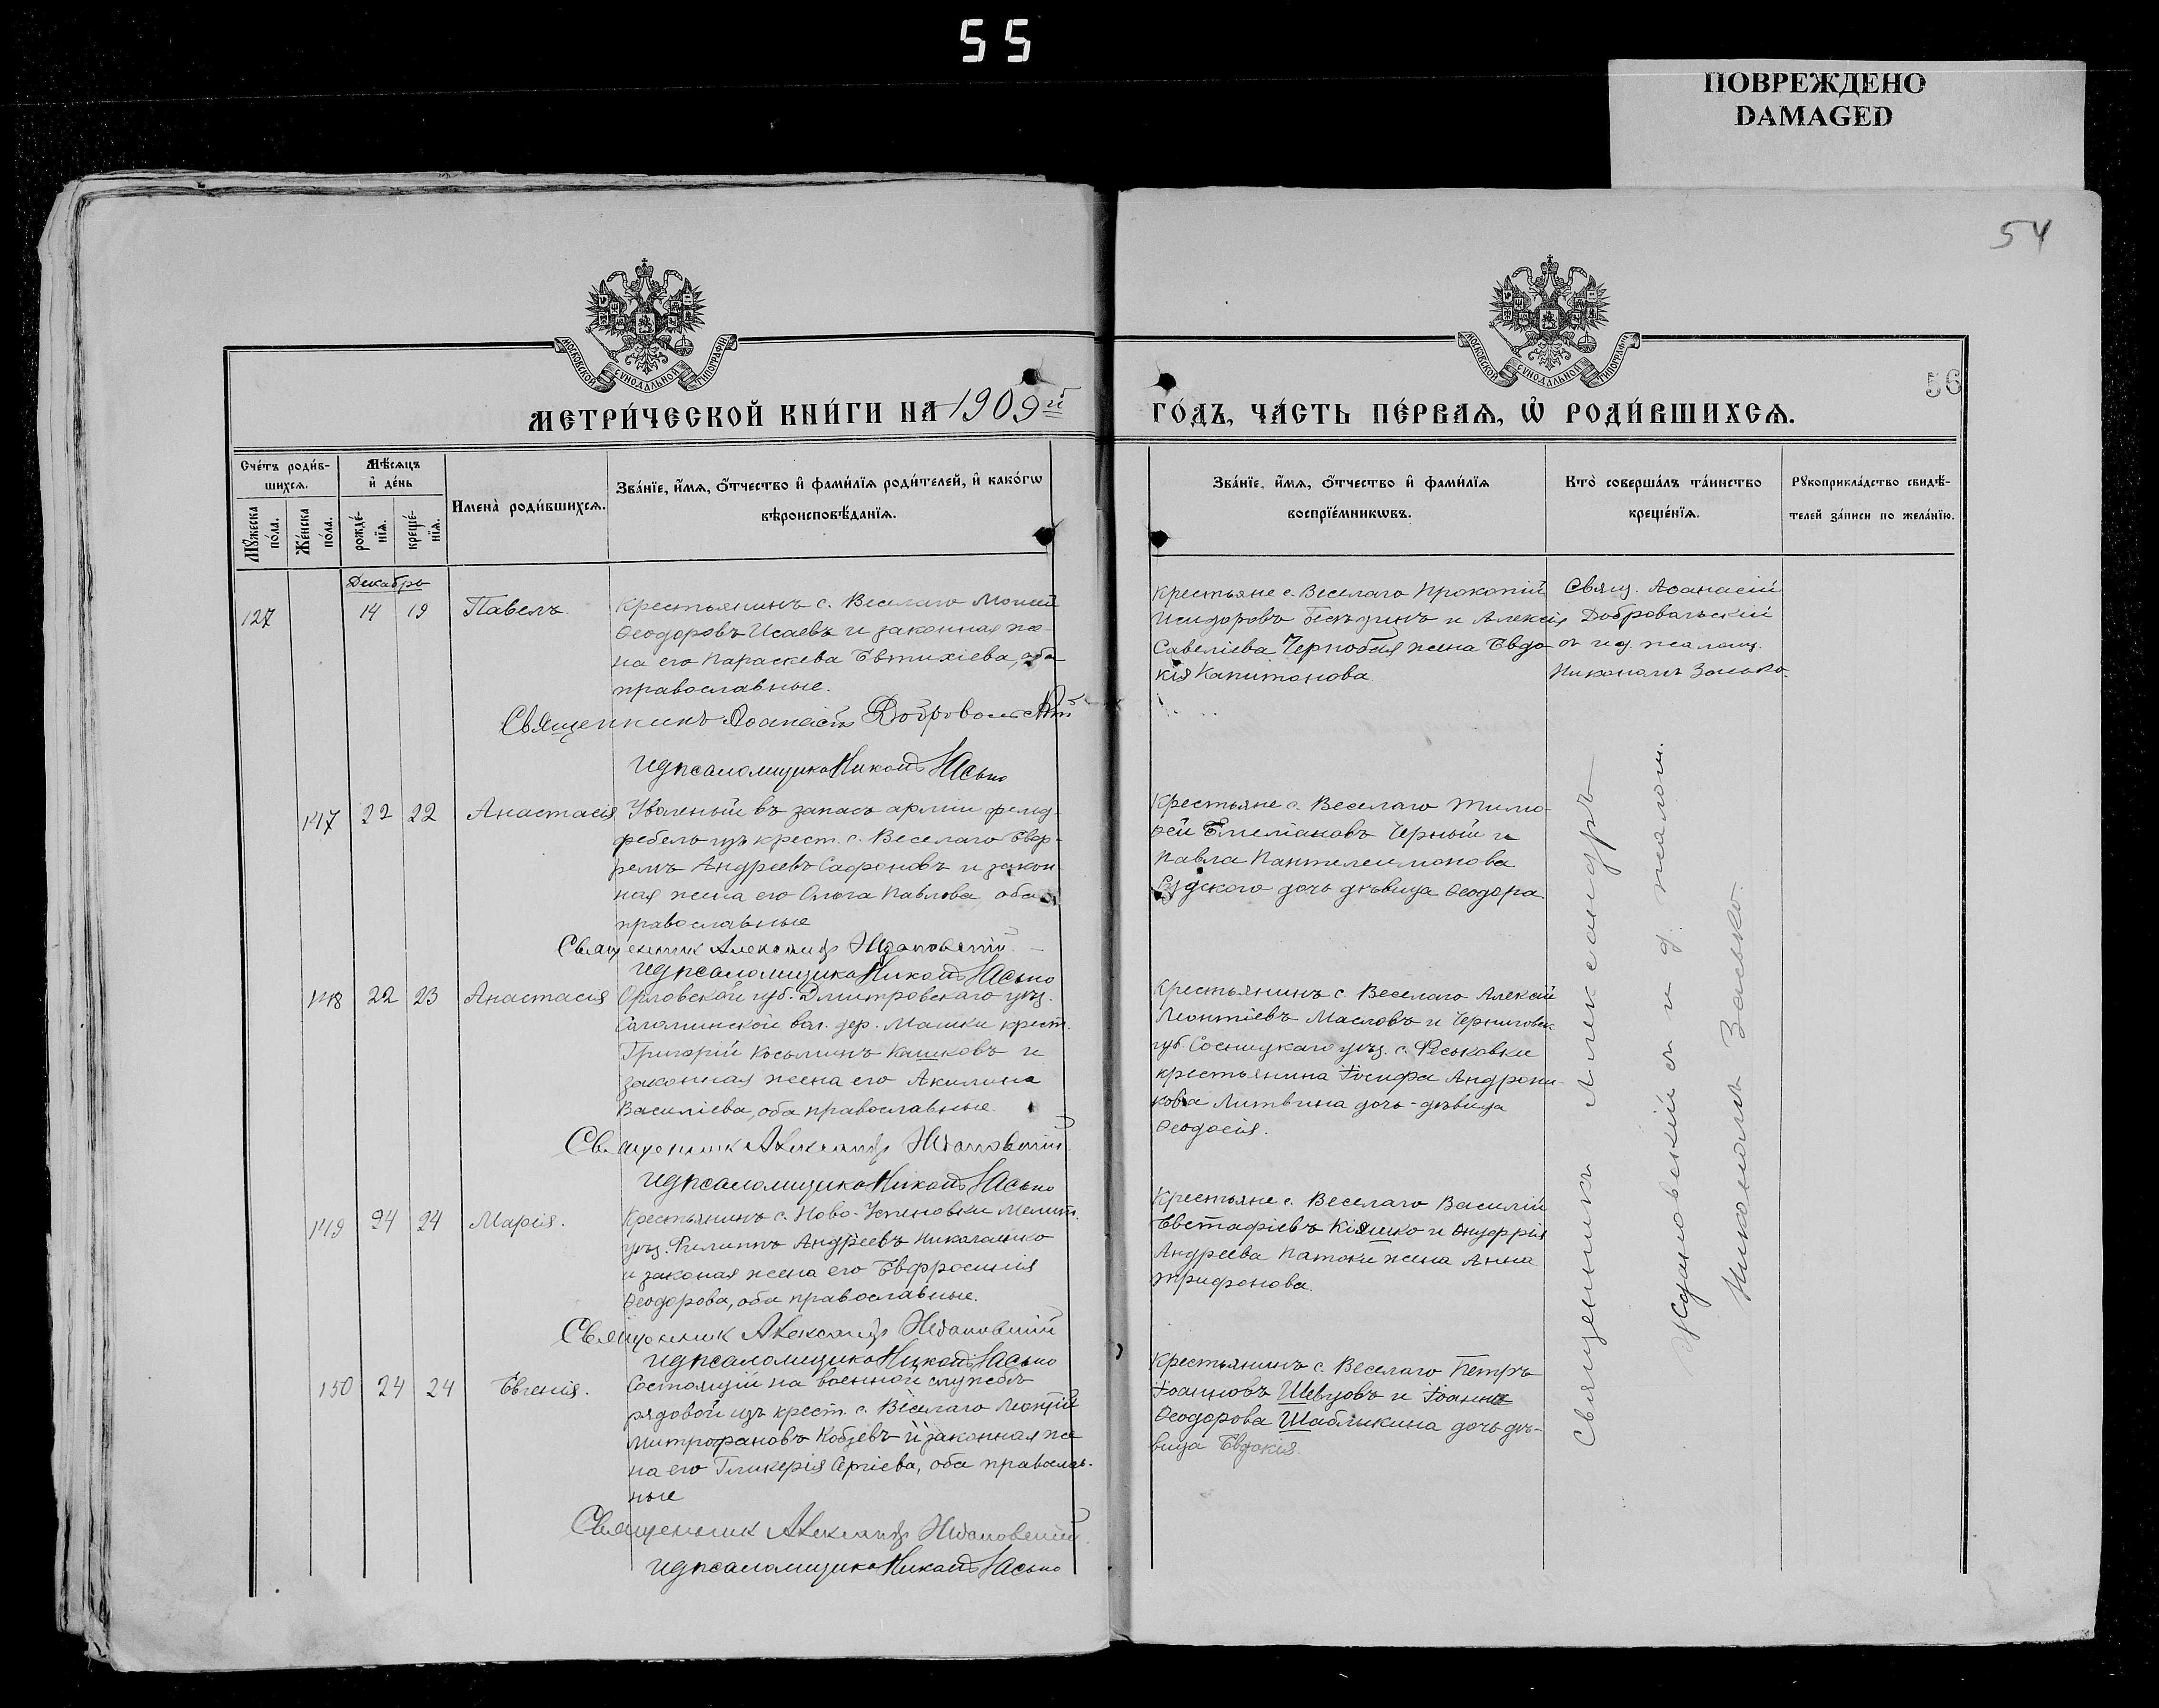 55
ПОВРЕЖДЕНО
DAMAGED
54
56
МОСКОВСКОЙ СѴНОДАЛЬНОЙ ТИПОГРАФІИ
МОСКОВСКОЙ СѴНОДАЛЬНОЙ ТИПОГРАФІИ
МЕТРИ́ЧЕСКОЙ КНИ́ГИ НА 1909й
ГО́ДЪ, ЧА́СТЬ ПЕ́РВАѦ, Ѡ҆ РОДИ́ВШИХСѦ.
Сче́тъ роди́в-
шихсѧ.
Мѣ́сѧцъ
и҆ де́нь
Мꙋ́жеска
по́ла.
Же́нска
по́ла.
рожде́-
нїѧ.
креще́-
нїѧ.
Имена̀ роди́вшихсѧ.
Зва́нїе, и҆́мѧ, ѻ҆́тчество и҆ фами́лїѧ роди́телей, и҆ како́гѡ
вѣроисповѣ́данїѧ.
Зва́нїе, и҆́мѧ, ѻ҆́тчество и҆ фами́лїѧ
воспрїе́мникѡвъ.
Кто̀ соверша́лъ та́инство
креще́нїѧ.
Рꙋкоприкла́дство свидѣ́-
телей за́писи по жела́нїю.
Декабрь
127 14 19 Павелъ
Крестьянинъ с. Веселаго Моисей
Ѳеодоровъ Исаевъ и законная же-
на его Параскева Евтихіева, оба
православные.
Священникъ Аѳанасій Добровольскій
и д псаломщика Никонъ Засько
Крестьяне с. Веселаго Прокопій
Исидоровъ и Алексія
Савеліева Чернобая жена Евдо-
кія Капитонова
Свящ. Аѳанасій
Добровольскій
съ и д. псаломщ.
Никономъ Засько.
147 22 22 Анастасія
Уволеный въ запасъ арміи фельд-
фебель изъ крест. с. Веселаго Евф-
ремъ Андреевъ Сафоновъ и закон
ная жена его Ольга Павлова, оба
православные
Священник Александр Ждановский
и д псаломщика Никонъ Засько
Крестьяне с. Веселаго Тимо-
ѳей Емеліановъ Черный и
Павла Пантелеимонова
дочь дѣвица Ѳеодора
148 22 23 Анастасія
Орловской губ. Дмитровскаго уѣз.
вол. дер. Машки крест.
Григорій Косьминъ Кашковъ и
законная жена его Акилина
Василіева, оба православные.
Священник Александр Ждановский
и д псаломщика Никонъ Засько
Крестьянинъ с. Веселаго Алексій
Леонтіевъ Масловъ и Черниговск.
губ. Сосницкаго уѣз. с. Феськовки
крестьянина Іосифа Андрони-
кова Литвина дочь-дѣвица
Ѳеодосія.
149 24 24 Марія.
Крестьянинъ с. Ново-Успеновки Мелит.
уѣз. Филиппъ Андреевъ Николаенко
и законая жена его Евфросинія
Ѳеодорова, оба православные.
Священник Александр Ждановский
и д псаломщика Никонъ Засько
Крестьяне с. Веселаго Василій
Евстафіевъ Кіяшко и Онуфрія
Андреева Патоки жена Анна
Трифонова.
150 24 24 Евгенія.
Состоящій на военной службѣ
рядовой изъ крест. с. Веселаго Леонтій
Митрофановъ Кобзевъ и законная же
на его Гликерія Сергіева, оба православ-
ные
Священник Александр Ждановский
и д псаломщика Никонъ Засько
Крестьянинъ с. Веселаго Петръ
Іоанновъ Шевцовъ и Іоанна
Ѳеодорова Шаблыкина дочь дѣ-
вица Евдокія.
Священникъ Александръ
Ждановскій съ и д. псалом.
Никономъ Засько.